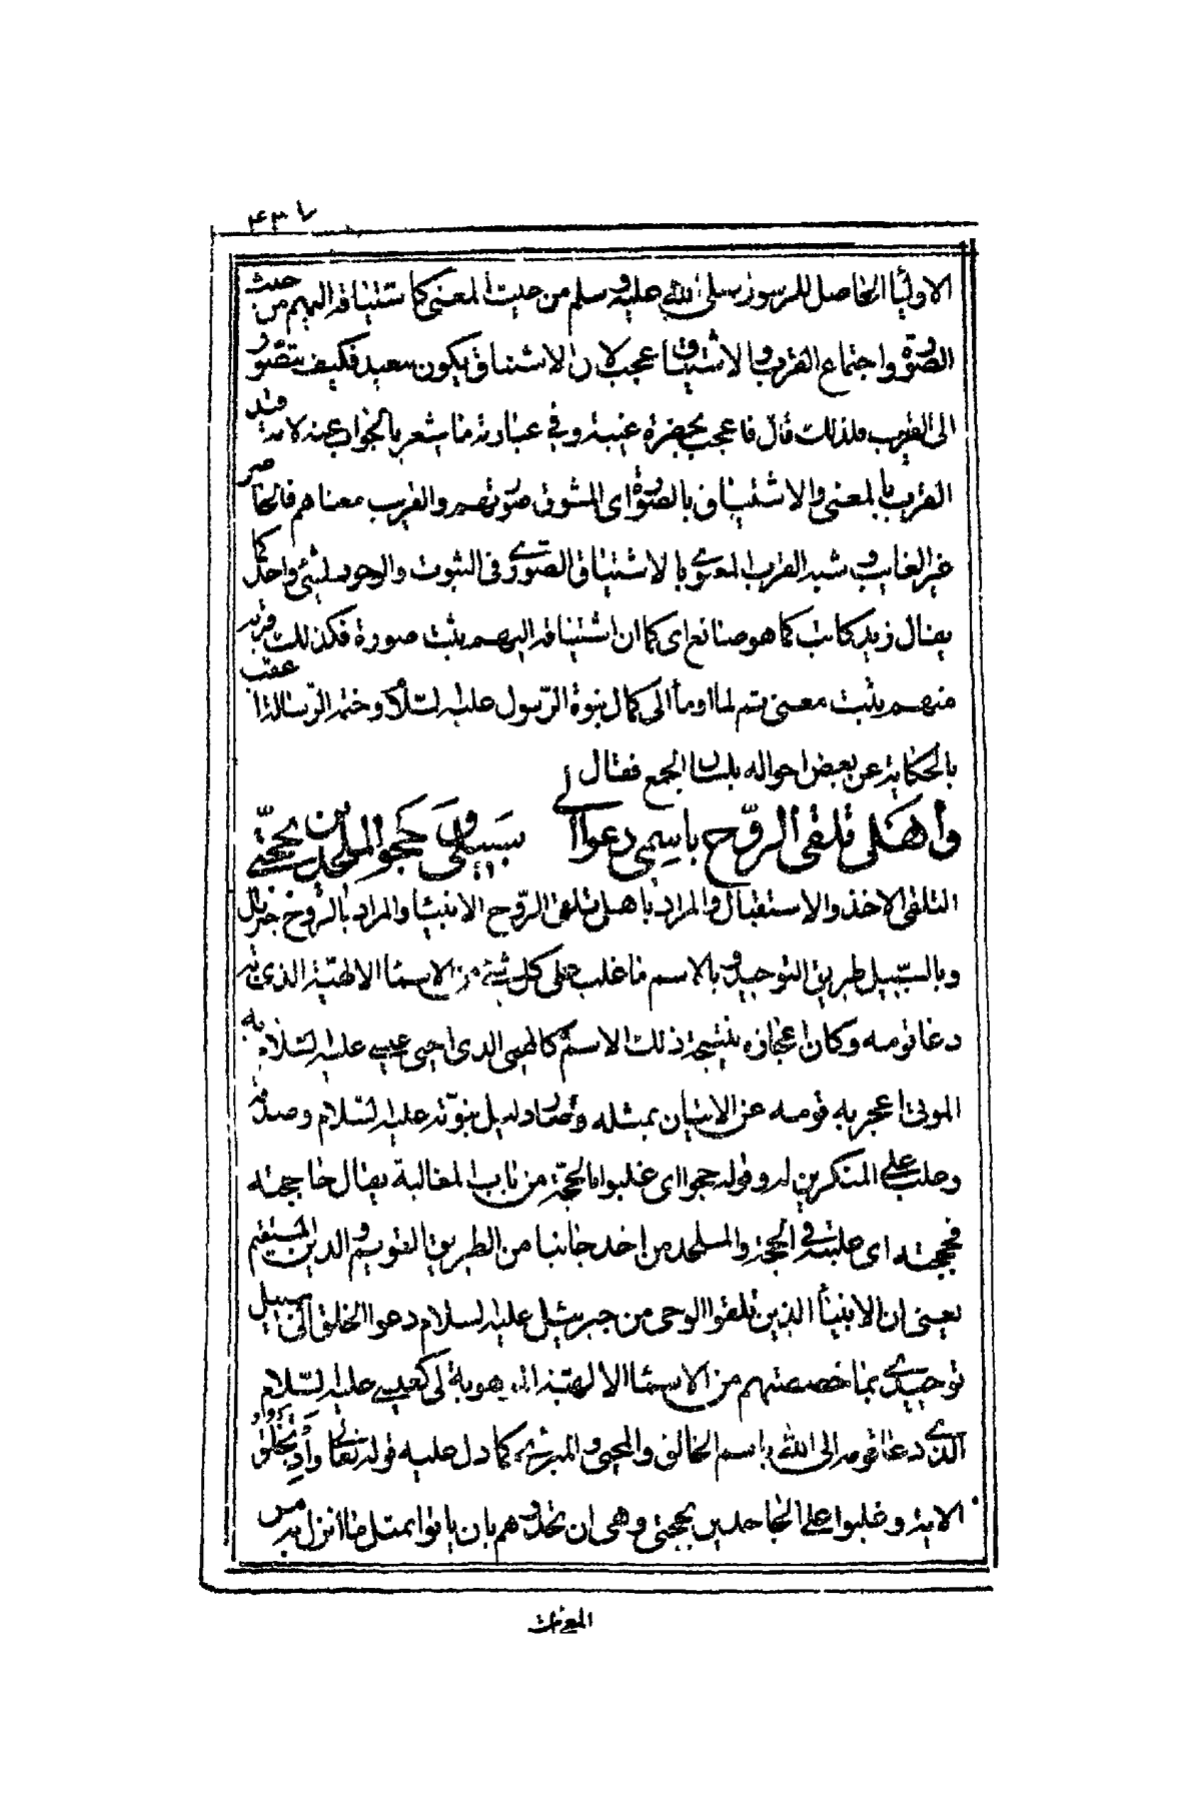 ٤٣٧
الاوليا الحاصل للرسول صلى الله عليه وسلم من حيث المعنى كاشتياقه اليهم من حيث
الصورة واجتماع القرب والاشتياق عجب لان الاشتياق يكون ببعيد فكيف يتصور
الى القريب فلذلك قال فاعجب بحضرة غيبة وفي عبارته ما يشعر بالجواب عنه لانه قيد
القرب بالمعنى والاشتياق بالصورة اى المشوق صورتهم والقريب معناهم فالحاضر
غير الغايب وشبه القرب المعنوى بالاشتياق الصورى فى الثبوت والوجود لشئ واحد كما
يقال زيد كاتب كما هو صانع اى كما ان اشتياقه اليهم يثبت صورة فكذلك قربه
منهم يثبت معنى ثم لما اومأ الى كمال نبوة الرسول عليه السلام وختم الرسالة عقب
بالحكاية عن بعض احواله بلسان الجمع فقال
وأهل تلقى الروح باسمى دعوا الى سبيلى وحجوا الملحدين بحجتى
التلقى الاخذ والاستقبال والمراد باهل تلقى الروح الانبيا والمراد بالروح جبريل
وبالسبيل طريق التوحيد وبالاسم ما غلب على كل شئ من الاسما الالهية الذى به
دعا قومه وكان اعجازه بنتيجة ذلك الاسم كالمحيى الذى احيى عيسى عليه السلام به
الموتى اعجز به قومه عن الاتيان بمثله وصار دليل نبوته عليه السلام وصدقه
وغلب على المنكرين له وقوله حجوا اى غلبوا بالحجة من باب المغالبة يقال حاججته
فحججته اى غلبته فى الحجة والملحد من اخذ جانبا من الطريق القويم والدين المستقيم
يعنى ان الانبيأ الذين تلقوا الوحى من جبرئيل عليه السلام دعوا الخلق الى سبيل
توحيدى بما خصصتهم من الاسما الالهية كعيسى عليه السلام
الذى دعا قومه الى الله باسم الخالق والمحيى والمبرئ كما دل عليه قوله تعالى واذ تخلق
الاية وغلبوا على الجاحدين بحجتى وهى ان تحدوهم بان ياتوا بمثل ما انزل به من